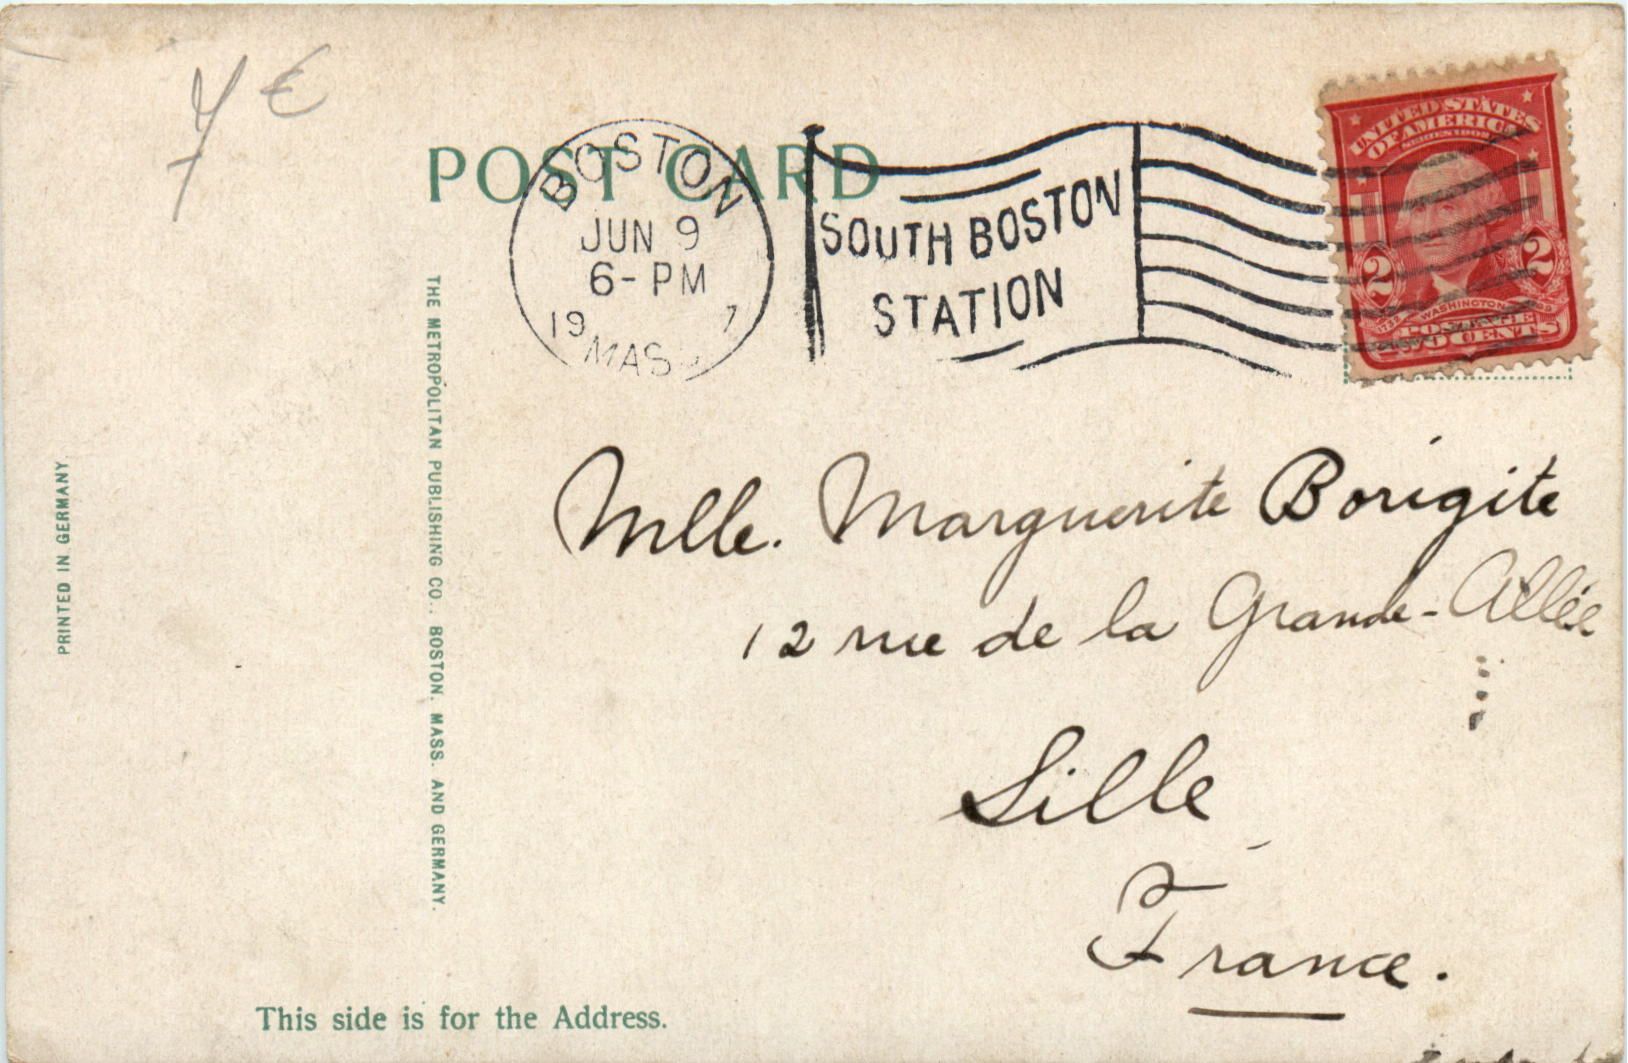 7 €
POST CARD
BOSTON
JUN 9
6-PM
19 7
MASS
SOUTH BOSTON
STATION
UNITED STATES
OF AMERICA
SERIES 1902
2 2
1732 WASHINGTON 1799
POSTAGE
TWO CENTS
PRINTED IN GERMANY
THE METROPOLITAN PUBLISHING CO., BOSTON, MASS. AND GERMANY.
Mlle. Marguerite Borigite
12 rue de la Grande-Allée
Lille
France.
This side is for the Address.